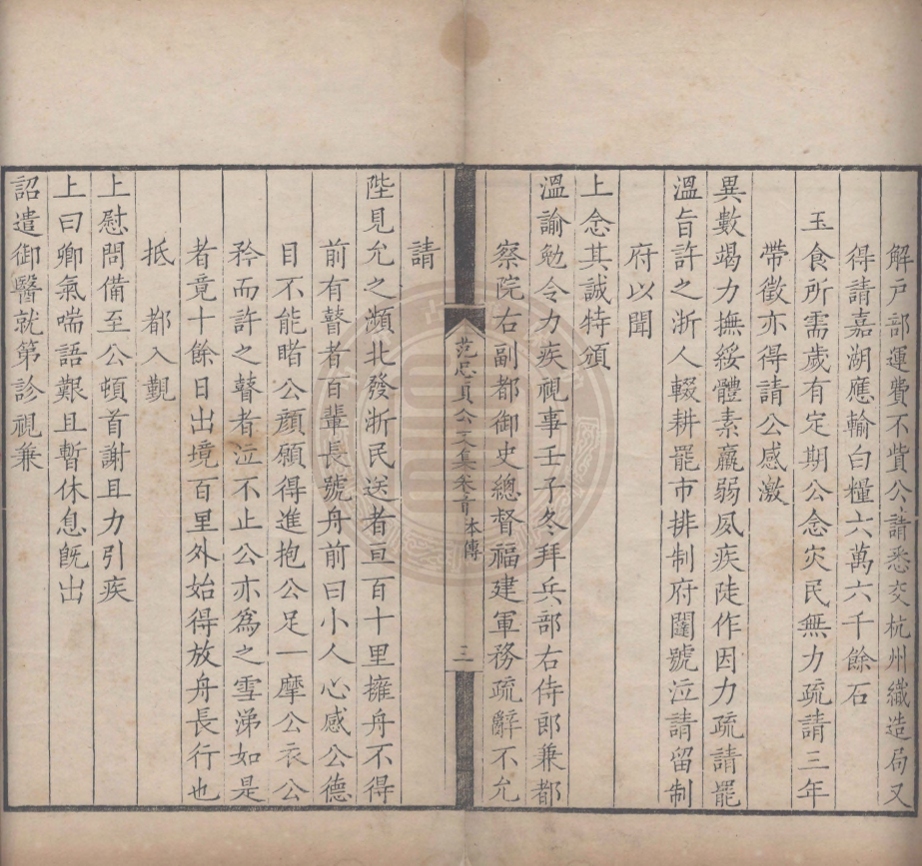 解戶部運費不貲公請悉交杭州織造局又
得請嘉湖應輸白糧六萬六千餘石
玉食所需歲有定期公念灾民無力疏請三年
帶徵亦得請公感激
異數竭力撫綏體素羸弱夙疾陡作因力疏請罷
溫旨許之浙人輟耕罷市排制府闥號泣請留制
府以聞
上念其誠特頒
溫諭勉令力疾視事壬子冬拜兵部右侍郎兼都
察院右副都御史總督福建軍務疏辭不允
范忠貞公文集卷首 本傳 三
請
陛見允之瀕北發浙民送者亘百十里擁舟不得
前有瞽者百輩長號舟前曰小人心感公德
目不能睹公顏願得進抱公足一摩公衣公
矜而許之瞽者泣不止公亦爲之雪涕如是
者竟十餘日出境百里外始得放舟長行也
抵都入覲
上慰問備至公頓首謝且力引疾
上曰卿氣喘語艱且暫休息既出
詔遣御醫就第診視兼